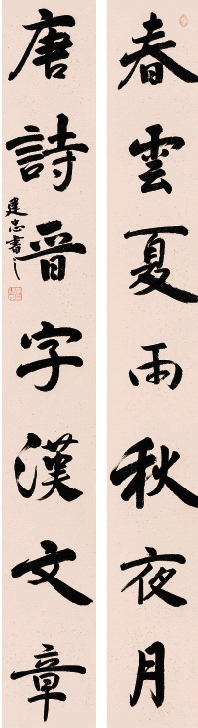 春雲夏雨秋夜月
唐詩晉字漢文章
建忠書之